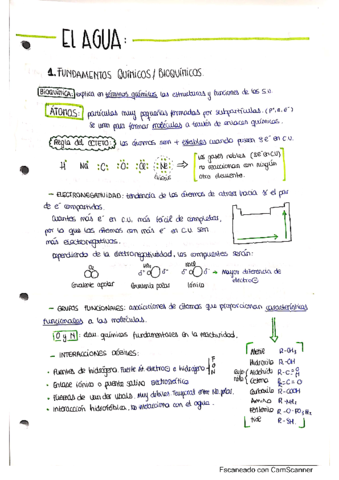 EL AGUA:
1. FUNDAMENTOS QUÍMICOS / BIOQUÍMICOS.
BIOQUÍMICA: explica en términos químicos las estructuras y funciones de los S.V.
ÁTOMOS: partículas muy pequeñas formadas por subpartículas. (p+, n, e-)
Se unen para formar moléculas a través de enlaces químicos.
Regla del OCTETO: los átomos son + estables cuando poseen 8 e- en C.V.
H Na C O Cl Ne → los gases nobles (8e- en C.V)
no reaccionan con ningún
otro elemento.
- ELECTRONEGATIVIDAD: tendencia de los átomos de atraer hacia sí el par
de e- compartidos.
Cuantos más e- en C.V. más fácil de completar,
por lo que los átomos con más e- en C.V. son
más electronegativos.
Dependiendo de la electronegatividad, los compuestos serán:
→ Mayor diferencia de
electro
Covalente apolar Covalente polar Iónico
- GRUPOS FUNCIONALES: asociaciones de átomos que proporcionan características
funcionales a las moléculas.
O y N: elem. químicos fundamentales en la reactividad.
- INTERACCIONES DÉBILES:
• Puentes de hidrógeno. Fuerte en electro e hidrógeno F O N
• Enlace iónico o puente salino. Electrostática
• Fuerzas de van der Waals. Muy débiles. Temporal entre no polar.
• Interacción hidrofóbica, no reacciona con el agua.
Metil R-CH3
Hidroxilo R-OH
Aldehído R-C=O H
Cetona R-C=O
Carboxilo R-COOH
Amino R-NH2
R-SH
Escaneado con CamScanner